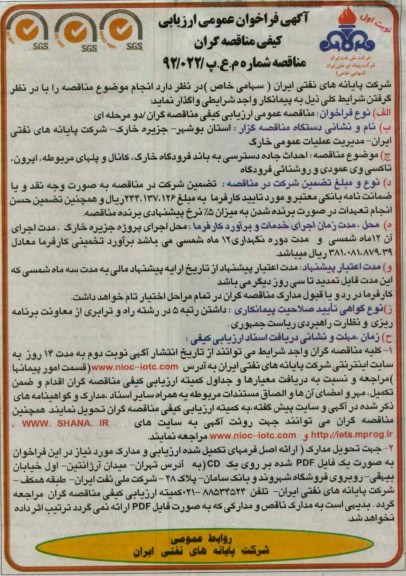 نوبت اول
آگهی فراخوان عمومی ارزیابی
کیفی مناقصه گران
مناقصه شماره م.ع.پ/۹۲/۰۲۷
شرکت ملی نفت ایران
شرکت پایانه های نفتی ایران
(سهامی خاص)
SGS SGS SGS
شرکت پایانه های نفتی ایران ( سهامی خاص )در نظر دارد انجام موضوع مناقصه را با در نظر
گرفتن شرایط کلی ذیل به پیمانکار واجد شرایطی واگذار نماید:
الف) نوع فراخوان: مناقصه عمومی ارزیابی کیفی مناقصه گران/دو مرحله ای
ب) نام و نشانی دستگاه مناقصه گزار : استان بوشهر- جزیره خارک- شرکت پایانه های نفتی
ایران- مدیریت عملیات عمومی خارگ
ج) موضوع مناقصه: احداث جاده دسترسی به باند فرودگاه خارگ، کانال و پلهای مربوطه، اپرون،
تاکسی وی عمودی و روشنائی فرودگاه
د) نوع و مبلغ تضمین شرکت در مناقصه : تضمین شرکت در مناقصه به صورت وجه نقد و یا
ضمانت نامه بانکی معتبر و مورد تایید کارفرما به مبلغ ۲۴۳،۱۳۷،۱۲۶ریال و همچنین تضمین حسن
انجام تعهدات در صورت برنده شدن به میزان ۵٪ نرخ پیشنهادی برنده مناقصه.
ه) محل ، مدت زمان اجرای خدمات و برآورد کارفرما : محل اجرای پروژه جزیره خارگ ، مدت اجرای
آن ۱۲ماه شمسی و مدت دوره نگهداری۱۲ ماه شمسی می باشد برآورد تخمینی کارفرما معادل
۳۸۱،۰۸۱،۸۷۹،۳۹ ریال میباشد.
و) مدت اعتبار پیشنهاد: مدت اعتبار پیشنهاد از تاریخ ارایه پیشنهاد مالی به مدت سه ماه شمسی که
این مدت قابل تمدید تا سی روز دیگر می باشد
کارفرما در رد و یا قبول مدارک مناقصه گران در تمام مراحل اختیار تام خواهد داشت.
ز) نوع گواهی تأیید صلاحیت پیمانکاری : داشتن رتبه ۵ در رشته راه و ترابری از معاونت برنامه
ریزی و نظارت راهبردی ریاست جمهوری.
ح) زمان ،مهلت و نشانی دریافت اسناد ارزیابی کیفی:
۱- کلیه مناقصه گران واجد شرایط می توانند از تاریخ انتشار آگهی نوبت دوم به مدت ۱۴ روز به
سایت اینترنتی شرکت پایانه های نفتی ایران به آدرس www.nioc-iotc.com(قسمت امور پیمانها
)مراجعه و نسبت به دریافت معیارها و جداول کمیته ارزیابی کیفی مناقصه گران اقدام و ضمن
تکمیل، مهر و امضای آن ها و الصاق مستندات مربوطه به همراه سایر اسناد ،مدارک و گواهینامه های
ذکر شده در آگهی و سایت پیش گفته،به کمیته ارزیابی کیفی مناقصه گران تحویل نمایند. همچنین
مناقصه گران می توانند جهت رونت آگهی به سایت های WWW. SHANA. IR ،
http://iets.mprog.ir و www.nioc-iotc.com مراجعه نمایند.
۲- جهت تحویل مدارک ( ارائه اصل فرمهای تکمیل شده ارزیابی و مدارک مورد نیاز در این فراخوان
به صورت یک فایل PDF شده بر روی یک CD)به آدرس تهران- میدان آرژانتین- اول خیابان
بیهقی- روبروی فروشگاه شهروند و بانک سامان- پلاک ۲۸ - شرکت ملی نفت ایران- طبقه همکف-
شرکت پایانه های نفتی ایران- تلفن ۸۸۵۳۳۵۲۳-۰۲۱کمیته ارزیابی کیفی مناقصه گران مراجعه
گردد. بدیهی است به مدارک ناقص و مدارکی که به صورت فایل PDF ارائه نمی گردد ترتیب اثر داده
نخواهد شد.
روابط عمومی
شرکت پایانه های نفتی ایران